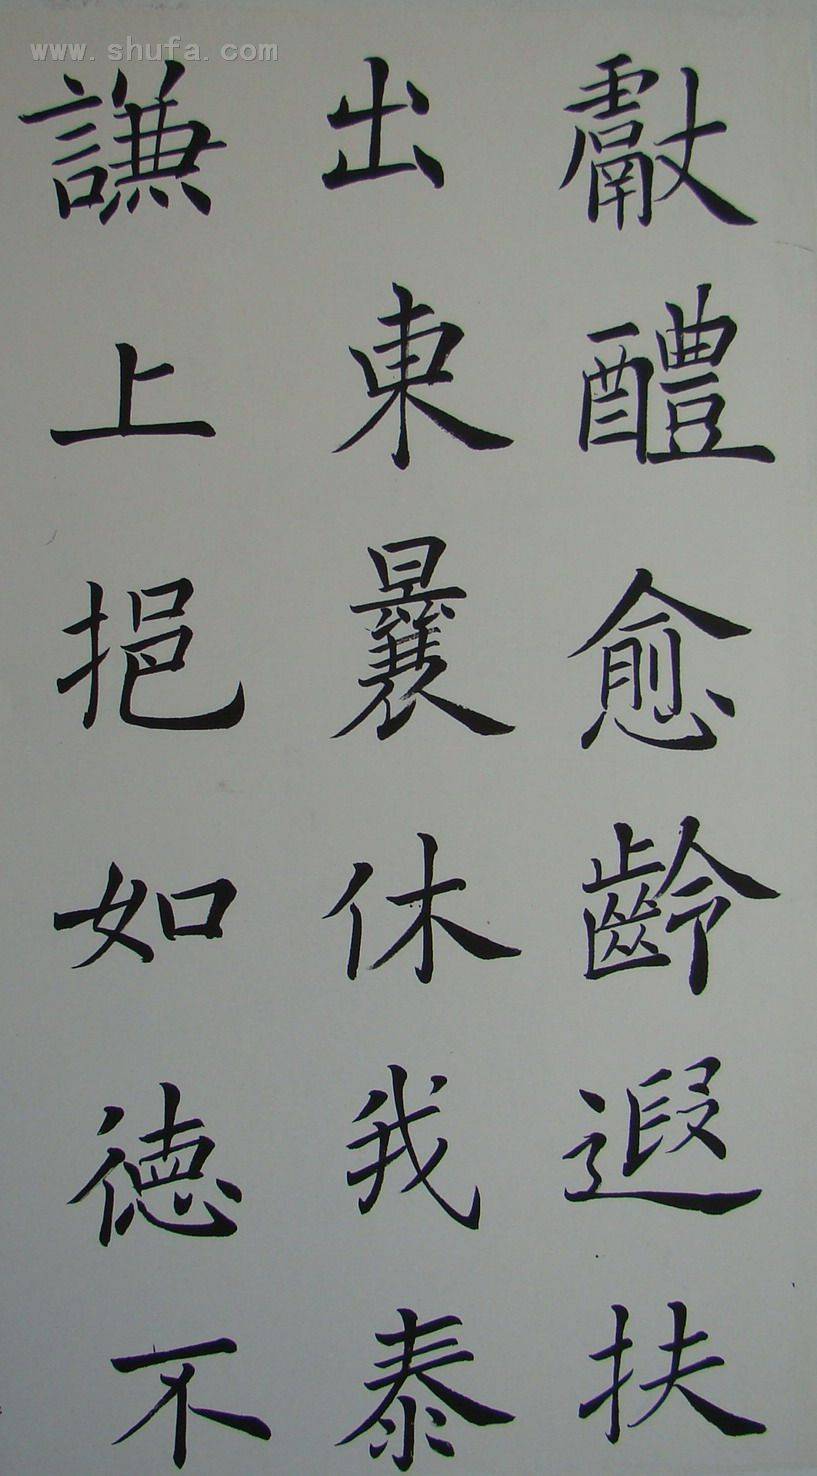 www.shufa.com
獻醴愈齡遐扶
出東曩休我泰
謙上挹如德不